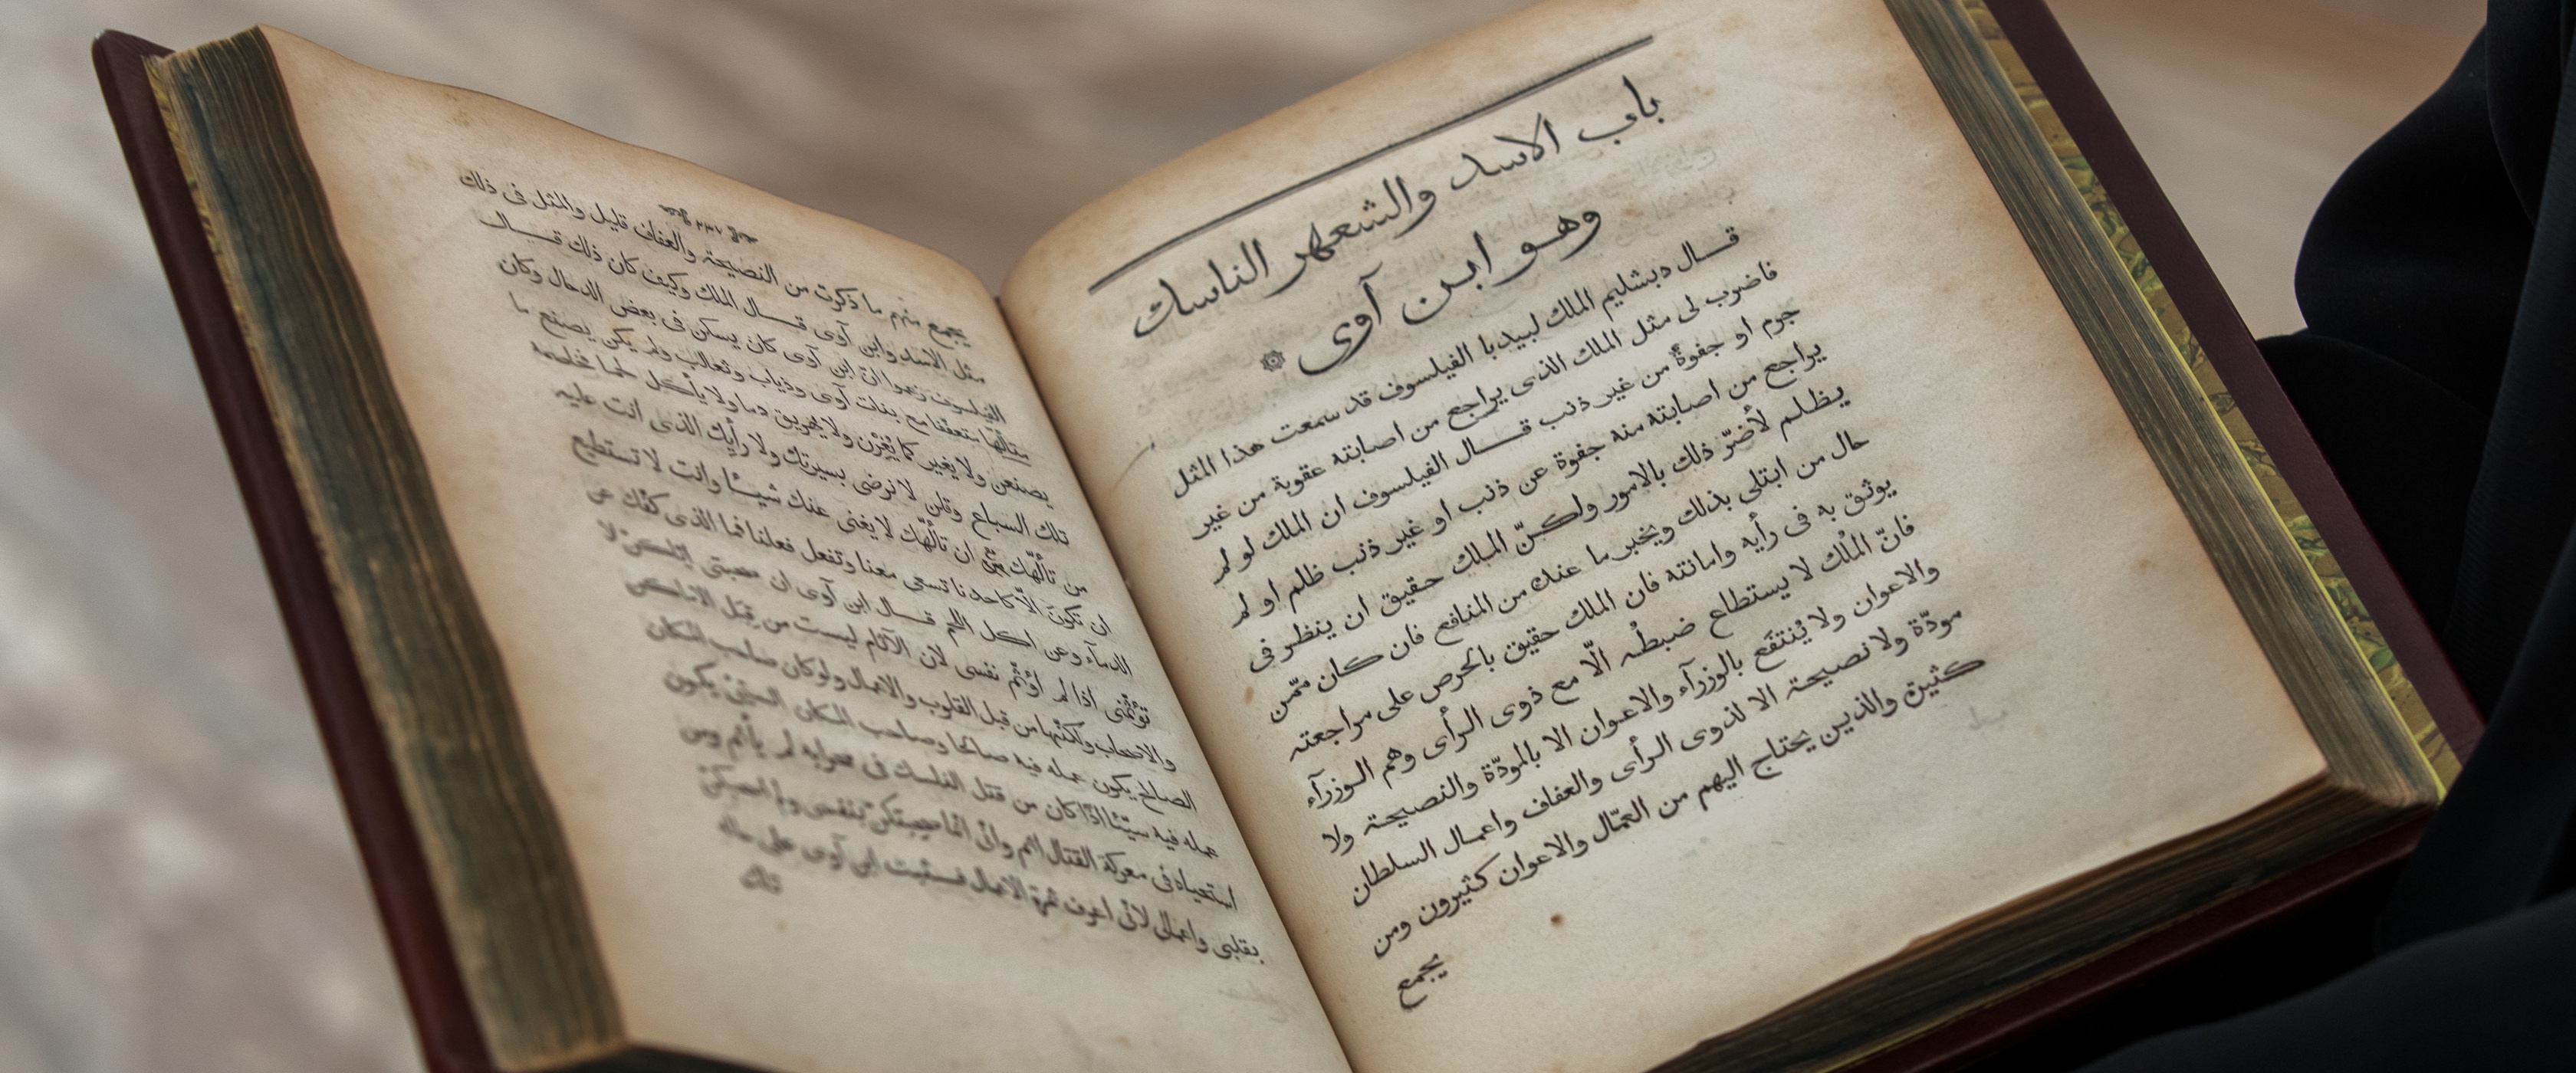 باب الاسد والشعهر الناسك
وهو ابن آوى
قال دبشليم الملك لبيدبا الفيلسوف قد سمعت هذا المثل
فاضرب لى مثل الملك الذى يراجع من اصابته عقوبة من غير
جرم او جفوة من غير ذنب قال الفيلسوف ان الملك لو لم
يراجع من اصابته منه جفوة عن ذنب او غير ذنب ظلم او لم
يظلم لأضرّ ذلك بالامور ولكنّ الملك حقيق ان ينظر فى
حال من ابتلى بذلك ويخبر ما عنده من المنافع فان كان ممّن
يوثق به فى رأيه وامانته فان الملك حقيق بالحرص على مراجعته
فانّ الملك لا يستطاع ضبطه الّا مع ذوى الرأى وهم الوزرآء
والاعوان ولا يُنتفَع بالوزرآء والاعوان الا بالمودّة والنصيحة ولا
مودّة ولا نصيحة الا لذوى الرأى والعفاف واعمال السلطان
كثيرة والذين يحتاج اليهم من العمّال والاعوان كثيرون ومن
يجمع
يجمع منهم ما ذكرت من النصيحة والعفاف قليل والمثل فى ذلك
مثل الاسد وابن آوى قال الملك وكيف كان ذلك قال
الفيلسوف زعموا انّ ابن آوى كان يسكن فى بعض الدحال وكان
متألّها متعفّفا مع بنات آوى وذياب وثعالب ولم يكن يصنع ما
يصنعن ولا يغير كما يُغِرْن ولا يهريق دما ولا يأكل لحما فخاصمه
تلك السباع وقلن لا نرضى بسيرتك ولا رأيك الذى انت عليه
من تألّهك مع ان تألّهك لا يغنى عنك شيئا وانت لا تستطيع
ان تكون الّا كاحدنا تسعى معنا وتفعل فعلنا فما الذى كفّك عن
الدمآء وعن اكل اللحم قال ابن آوى ان صحبتى ايّاكنّ لا
تؤثّمنى اذا لم اوثّم نفسى لان الآثام ليست من قِبَل الاماكن
والاصحاب ولكنّها من قبل القلوب والاعمال ولو كان صاحب المكان
الصالح يكون عمله فيه صالحا وصاحب المكان السيّئ يكون
عمله فيه سيّئا اذًا كان من قتل الناسك فى محرابه لم يأثم ومن
استحياه فى معركة القتال اثم وانّى انّما صحبتكنّ بنفسى ولم اصحبكنّ
بقلبى واعمالى لانّى اعرف ثمرة الاعمال فثبت ابن آوى على حاله
تلك